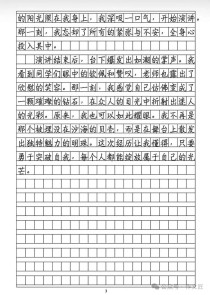 的阳光照在我身上，我深吸一口气，开始演讲。
那一刻，我忘却了所有的紧张与不安，全身心
投入其中。
演讲结束后，台下爆发出如潮的掌声。我
看到同学们眼中的钦佩和赞叹，老师也露出了
欣慰的笑容。那一刻，我感觉自己仿佛变成了
一颗璀璨的钻石，在众人的目光中折射出迷人
的光彩。原来，我也可以如此耀眼。我不再是
那个被埋没在沙海的贝壳，而是在舞台上散发
出独特魅力的明珠。这次经历让我懂得，只要
勇于突破自我，每个人都能绽放属于自己的光
芒。